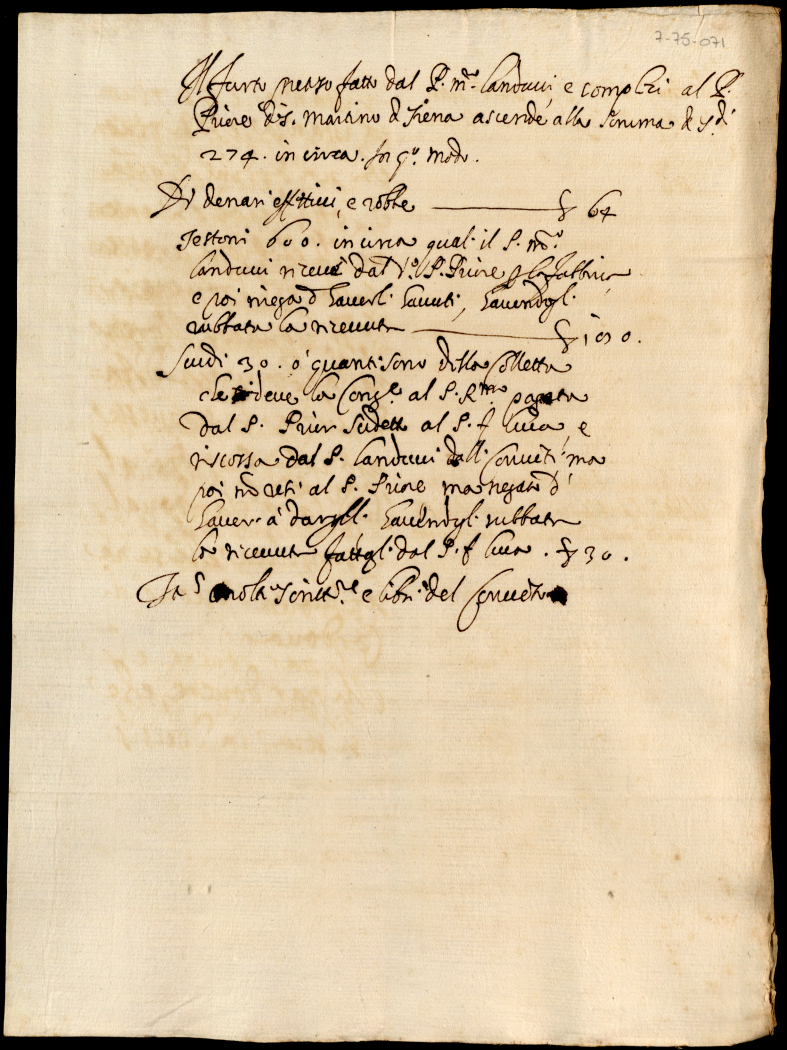 7-75-071
Il furto netto fatto dal P. mro. Landucci e complici al P.
Priore di S. Martino di Siena ascende alla somma di s.di
274. in circa. In qo. modo.
Di denari effettivi, e robbe ——— 64
Testoni 600. in circa quali il P. mro.
Landucci riceve dal P. Priore
e poi niega d' haverli havuti, havendogli
rubbata la ricevuta ———
Scudi 30. o quanti sono della Colletta
che deve la Conge. al P. Rmo. pagata
dal P. Prior sudetto al P. f. Luca e
riscossa dal P. Landucci dalli Conventi ma
poi nō resti al P. Priore ma negato d'
haver a dargli. havendogli rubbata
la ricevuta fattagli dal P. f. Luca. 30.
molte scritture e libri del Convento